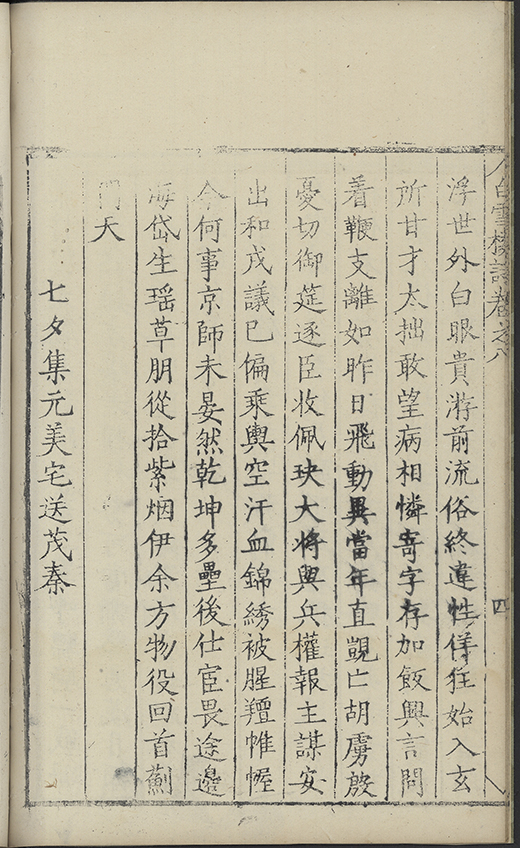 白雪樓詩卷之八 四
浮世外白眼貴游前流俗終違性佯狂始入玄
所甘才太拙敢望病相憐寄字存加飯興言問
着鞭支離如昨日飛動異當年直覬亡胡虜殷
憂切御筵逐臣收佩玦大將與兵權報主謀安
出和戎議已偏乘輿空汗血錦綉被腥羶帷幄
今何事京師未晏然乾坤多壘後仕宦畏途邊
海岱生瑶草朋從拾紫烟伊余方物役回首薊
門天
七夕集元美宅送茂秦